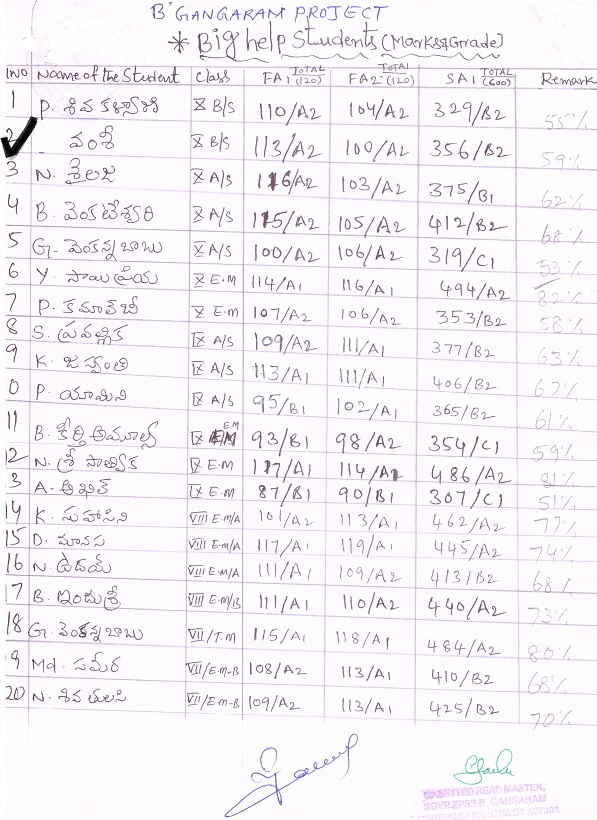 B' GANGARAM PROJECT
* Big help Students (Marks & Grade)
SNO Name of the Student Class FA1 TOTAL (120) FA2 TOTAL (120) SA1 TOTAL (600) Remark
1 P. శివ కళ్యాణి X B/S 110/A2 104/A2 329/B2 55%
2 వంశీ X B/S 113/A2 100/A2 356/B2 59%
3 N. శైలజ X A/S 116/A2 103/A2 375/B1 62%
4 B. వెంకటేశ్వరి X A/S 115/A2 105/A2 412/B2 68%
5 G. వెంకన్న బాబు X A/S 100/A2 106/A2 319/C1 53%
6 Y. సాయి ప్రియ X E.M 114/A1 116/A1 494/A2 82%
7 P. కమాల్‌బీ X E.M 107/A2 106/A2 353/B2 58%
8 S. ప్రవల్లిక IX A/S 109/A2 111/A1 377/B2 63%
9 K. జస్వంతి IX A/S 113/A1 111/A1 406/B2 67%
0 P. యామిని IX A/S 95/B1 102/A1 365/B2 61%
11 B. కీర్తి అమూల్య IX EM 93/B1 98/A2 354/C1 59%
12 N. శ్రీ సాత్విక IX E.M 117/A1 114/A1 486/A2 81%
3 A. అఖిల్ IX E.M 87/B1 90/B1 307/C1 51%
14 K. సుహాసిని VIII E.M/A 101/A2 113/A1 462/A2 77%
15 D. మానస VIII E.M/A 117/A1 119/A1 445/A2 74%
16 N. ఉదయ్ VIII E.M/A 111/A1 109/A2 413/B2 68%
17 B. ఇందుశ్రీ VIII E.M/B 111/A1 110/A2 440/A2 73%
18 G. వెంకన్నబాబు VII/T.M 115/A1 118/A1 484/A2 80%
9 Md. సమీర VII/E.M-B 108/A2 113/A1 410/B2 68%
20 N. శివ తులసి VII/E.M-B 109/A2 113/A1 425/B2 70%
GAZETTED HEAD MASTER,
B. GANGARAM